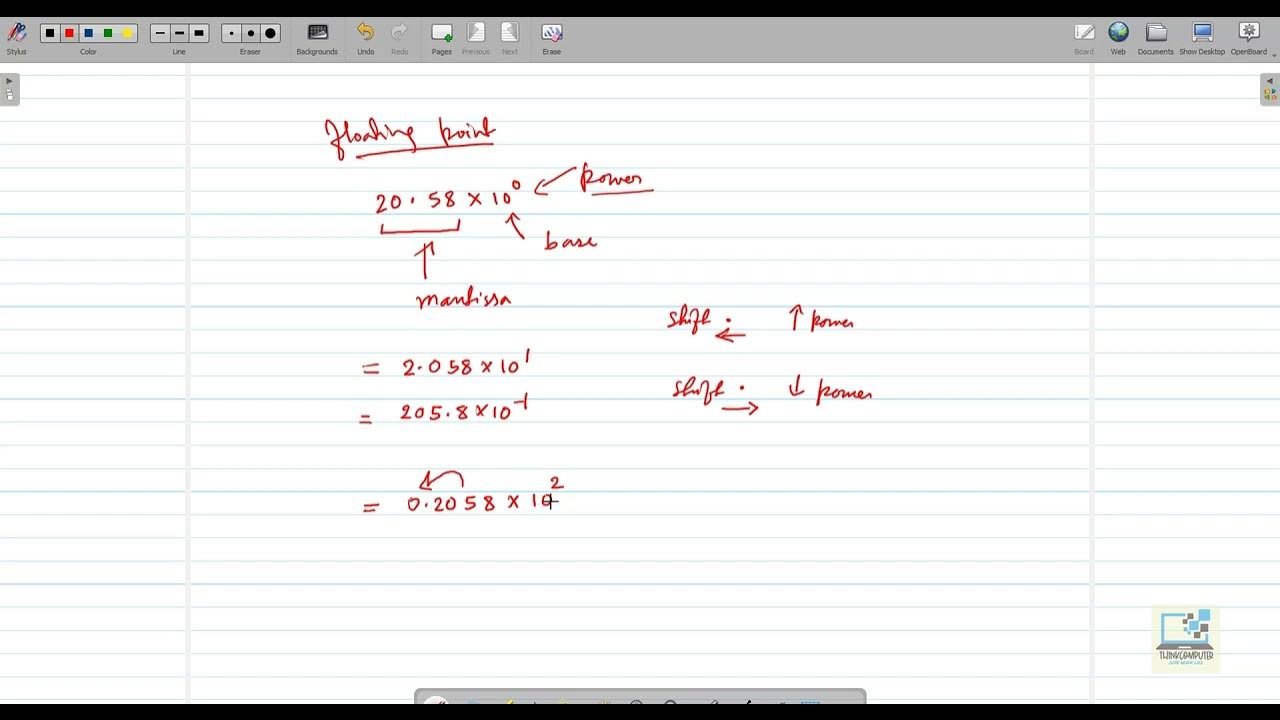 Stylus Color Line Eraser Backgrounds Undo Redo Pages Previous Next Erase Board Web Documents Show Desktop OpenBoard
floating point
20.58 × 10⁰ power
base
mantissa
shift . ↑ power
= 2.058 × 10¹
shift . ↓ power
= 205.8 × 10⁻¹
= 0.2058 × 10²
THINKCOMPUTER